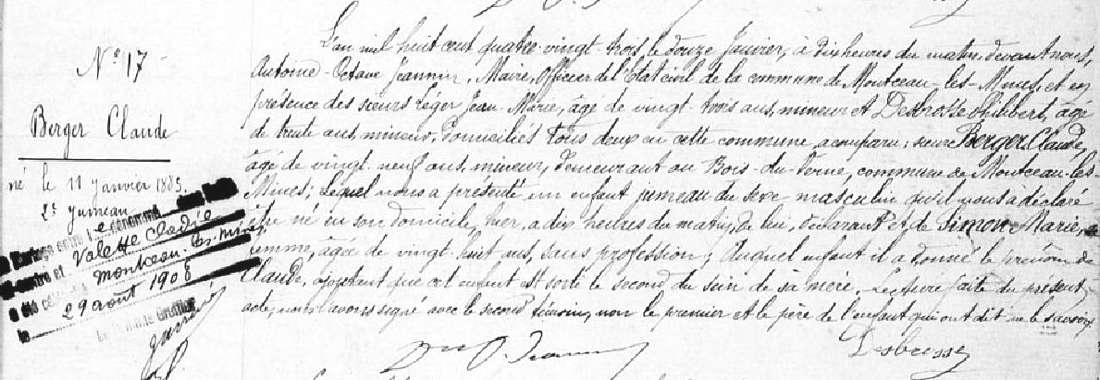 N° 17
Berger Claude
né le 11 Janvier 1883.
2e Jumeau
Le Mariage entre le dénommé
ci-contre et Valette Claudie
a été célébré à Montceau les Mines
le 29 août 1908
L'an mil huit cent quatre-vingt-trois, le douze Janvier, à dix heures du matin, devant nous,
Antoine-Octave Jeannin, Maire, Officier de l'Etat civil de la commune de Montceau-les-Mines, et en
présence des sieurs Léger Jean-Marie, âgé de vingt-trois ans, mineur et Philibert, âgé
de trente ans, mineur, domiciliés tous deux en cette commune, a comparu: sieur Berger Claude,
âgé de vingt-neuf ans, mineur, demeurant au Bois-du-Verne, commune de Montceau-les-
Mines; lequel nous a présenté un enfant jumeau du sexe masculin qu'il nous a déclaré
être né en son domicile, hier, à dix heures du matin, de lui, déclarant et de Simon Marie, sa
femme, âgée de vingt-huit ans, sans profession; Auquel enfant il a donné le prénom de
Claude, ajoutant que cet enfant est sorti le second du sein de sa mère. Lecture faite du présent
acte, nous l'avons signé avec le second témoin, non le premier et le père de l'enfant qui ont dit ne le savoir.
Desbrosse